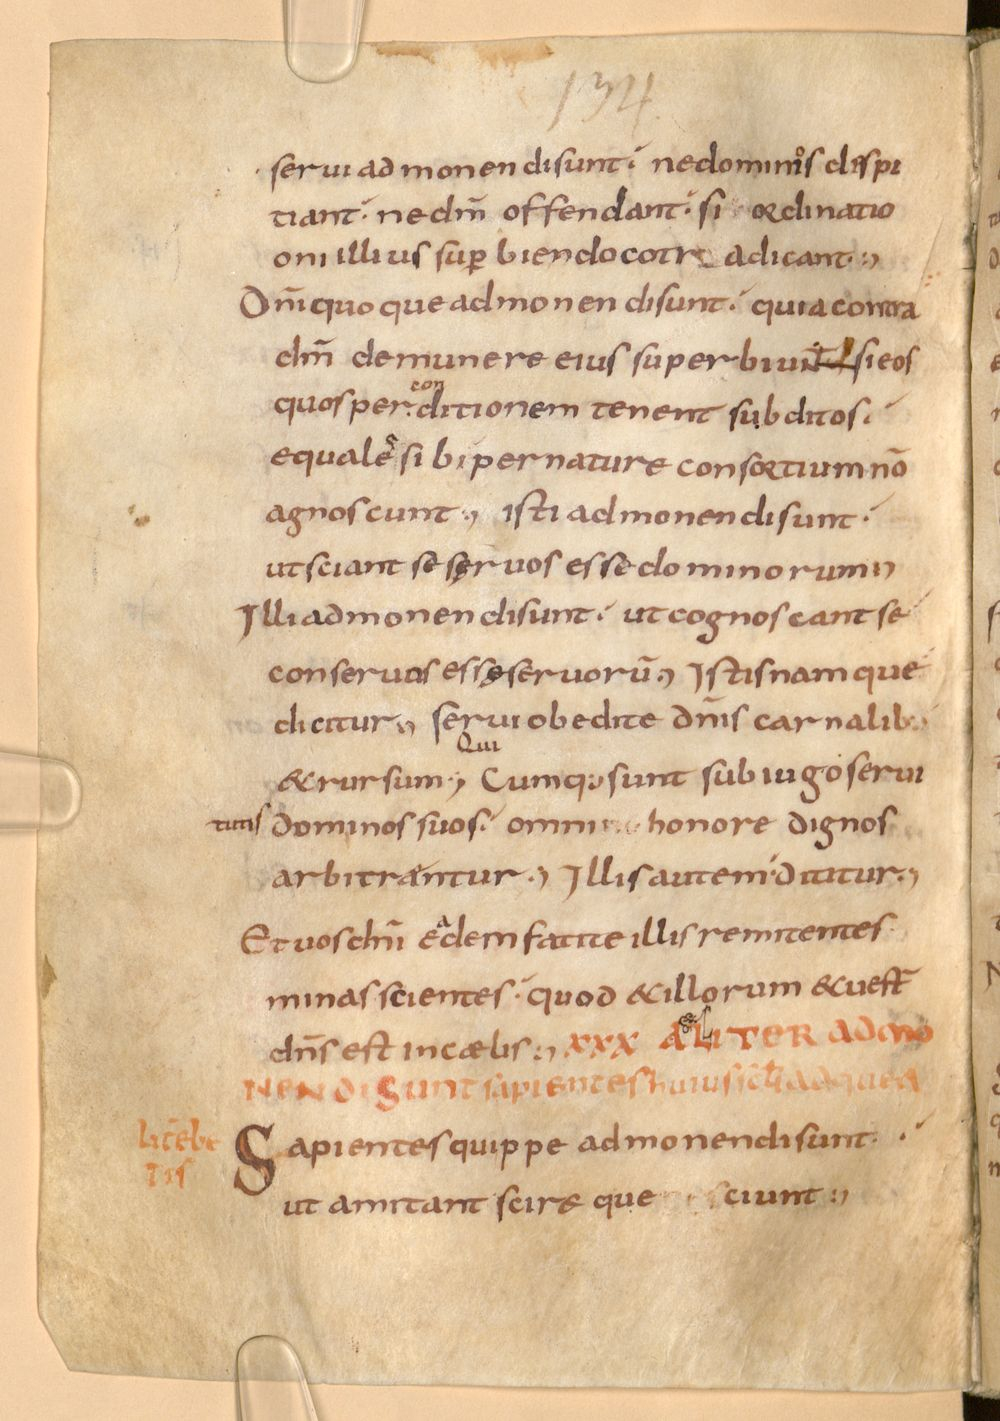 134
serui admonendi sunt. ne dominos dispi
tiant. ne dm̄ offendant. si ordinatio
oni illius sup biendo cotr adicant.
Dn̄i quoque admonendi sunt. quia contra
dm̄ de munere eius superbiunt si eos
con
quos per ditionem tenent subditos.
equales sibi per nature consortium nō
agnoscunt. isti admonendi sunt.
ut sciant se seruos esse dominorum
Illi admonendi sunt. ut cognoscant se
conseruos esse seruorū. Istis nam que
dicitur. serui obedite dn̄is carnalib;
Qui
& rursum. Cumq; sunt sub iugo serui
tutis dominos suos. omni honore dignos
arbitrantur. Illis autem dicitur.
Et uos dn̄i eadem facite illis remitentes
minas scientes. quod & illorum & uest̄
dn̄s est in cælis. XXX ALITER ADMO
NENDI SUNT sapientes huius scl̄i ad quea
Sapientes quippe admonendi sunt.
ut amitant scire que sciunt